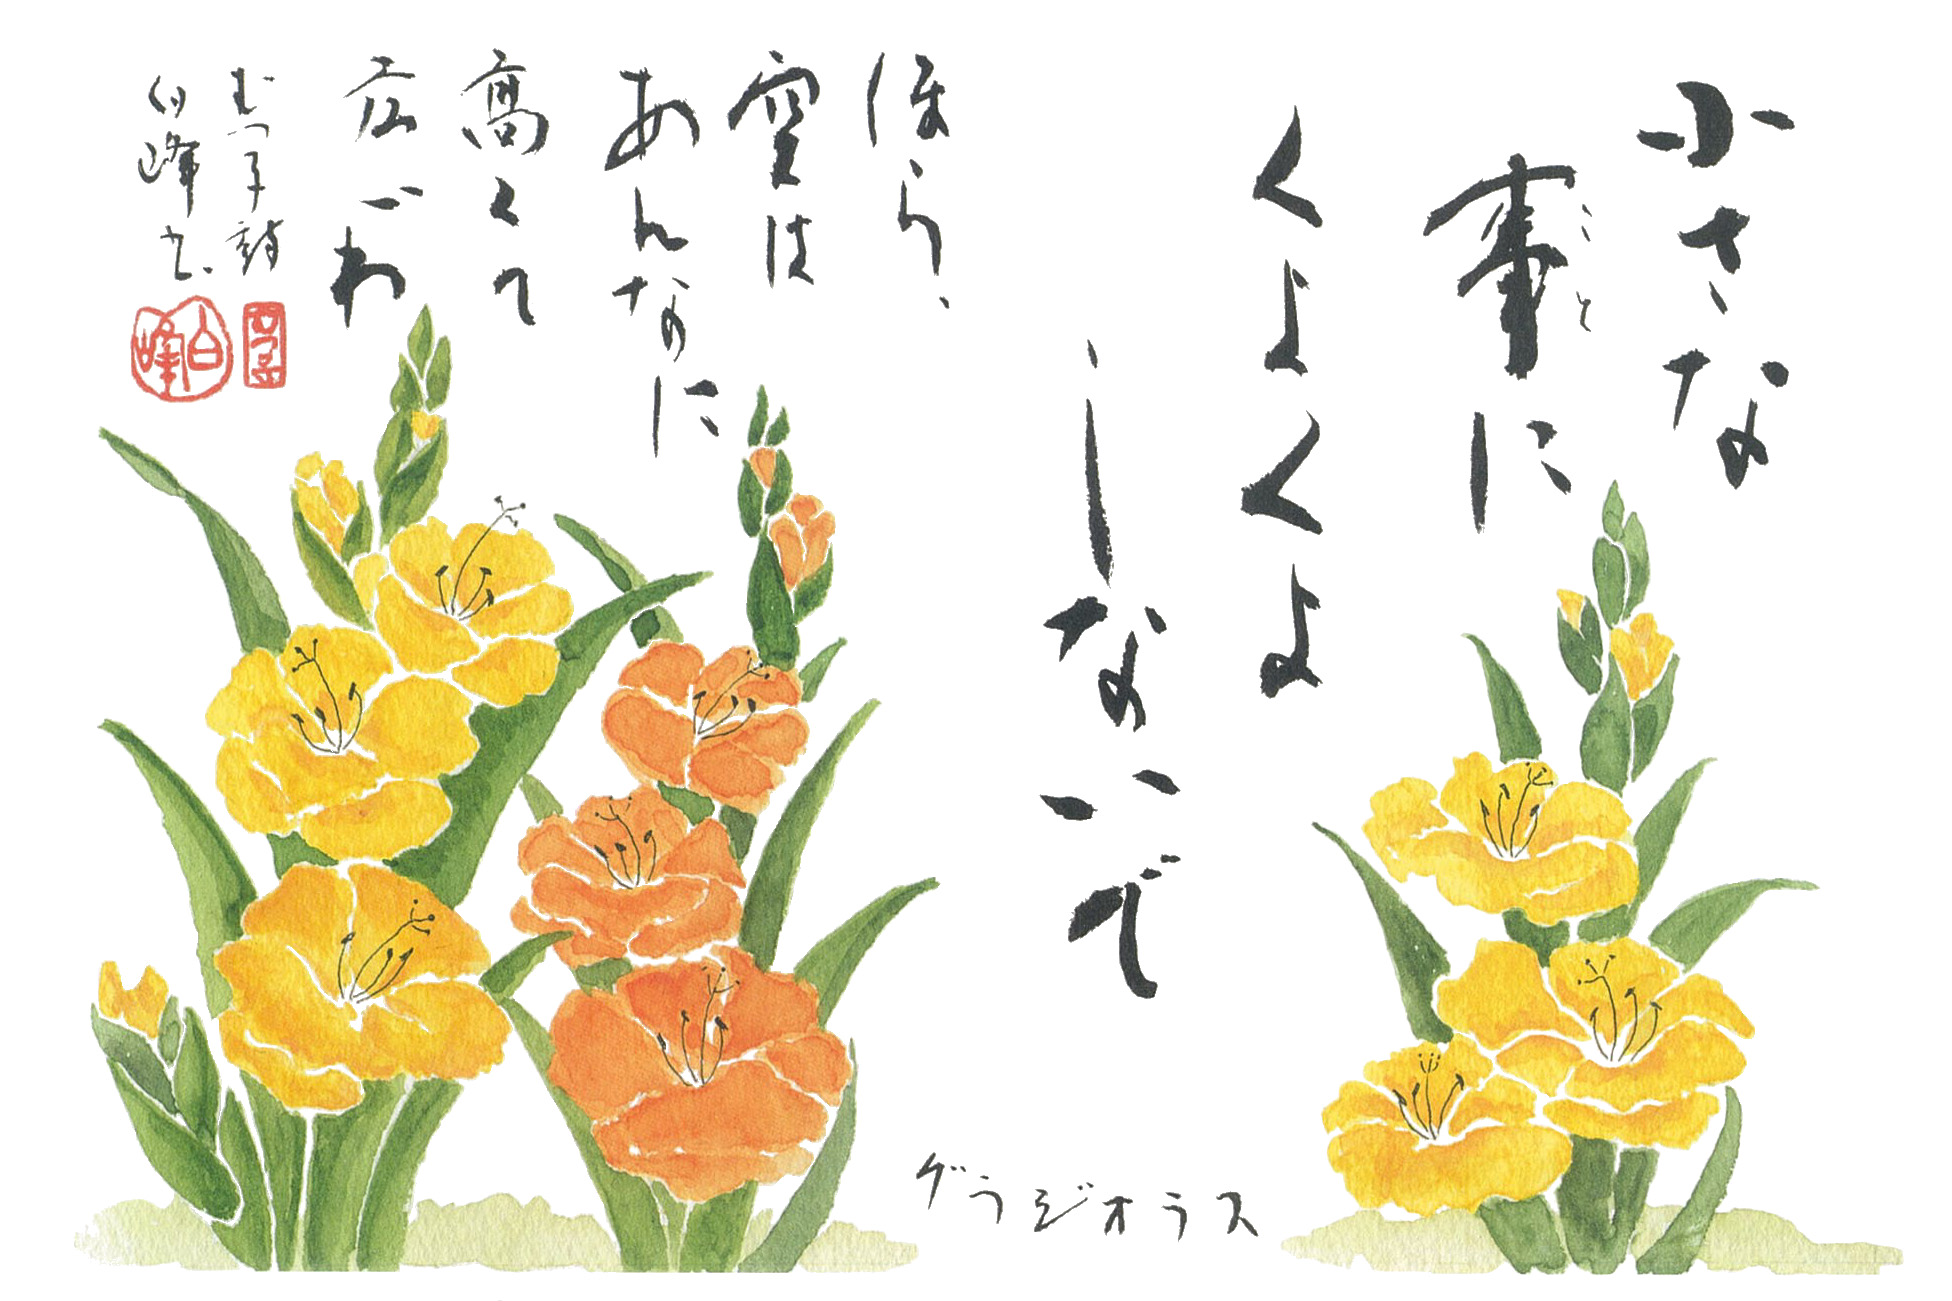 小さな
事に
こと
くよくよ
しないで
ほら、
空は
あんなに
高くて
広いわ
むつ子詩
白峰書
白峰
グラジオラス